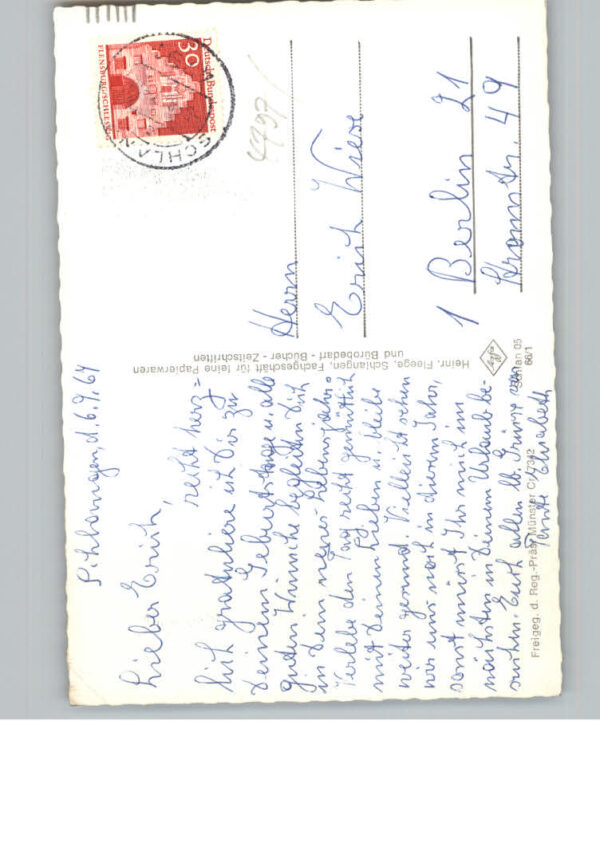 Schlangen, d. 6.9.67
Lieber Erich,
recht herz-
lich gratuliere ich Dir zu
Deinem Geburtstage u. alle
guten Wünsche begleiten Dich
in Dein neues Lebensjahr.
Verlebe den Tag recht gemütlich
mit Deinen Lieben u. bleibe
weiter gesund. Vielleicht sehen
wir uns noch in diesem Jahr,
sonst müsst Ihr mich im
nächsten in Deinem Urlaub be-
suchen. Euch allen lb. Grüße von
Tante Elisabeth
Heinr. Fleege, Schlangen, Fachgeschäft für feine Papierwaren
und Bürobedarf - Bücher - Zeitschriften
Freigeg. d. Reg.-Präs. Münster Cr/7342
Schlan 05
66/1
Deutsche Bundespost
30
FLENSBURG/SCHLESWIG
SCHLAN
4797
Herrn
Erich Wiese
1 Berlin 21
Stromstr. 49